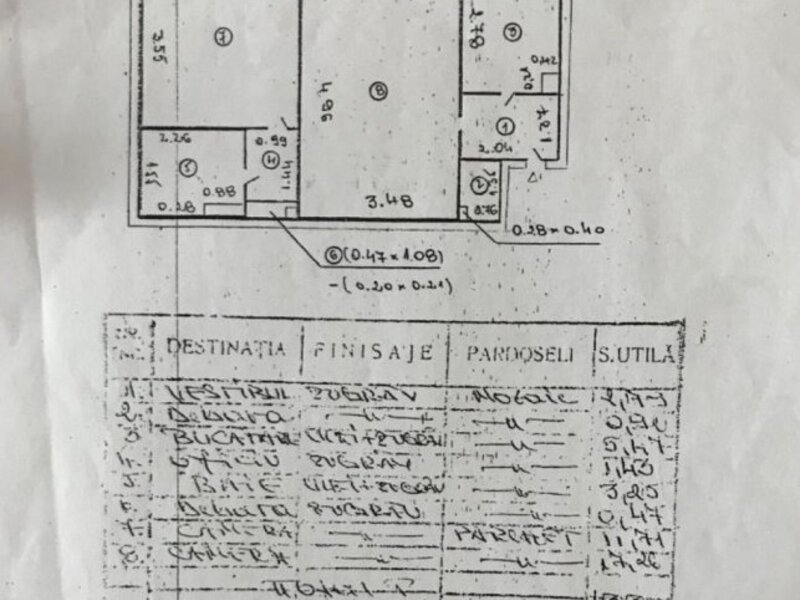 7
3.55
8
4.96
3.48
3
2.78
0.42
1
1.37
2.04
2.26
5
1.55
0.88
0.28
0.99
4
1.44
2
0.76
0.28 x 0.40
6 (0.47 x 1.08)
- (0.20 x 0.21)
DESTINAȚIA FINISAJE PARDOSELI S.UTILĂ
1. VESTIBUL ZUGRAV Mozaic 2,79
2. Debara —"— —"— 0,92
3 BUCATARIE ULEI+ZUGRAV —"— 5,47
4. OFICIU ZUGRAV —"— 1,43
5. BAIE ULEI+ZUGRAV —"— 3,25
6. Debara ZUGRAV —"— 0,47
7. CAMERA —"— PARCHET 11,71
8. CAMERA —"— —"— 17,26